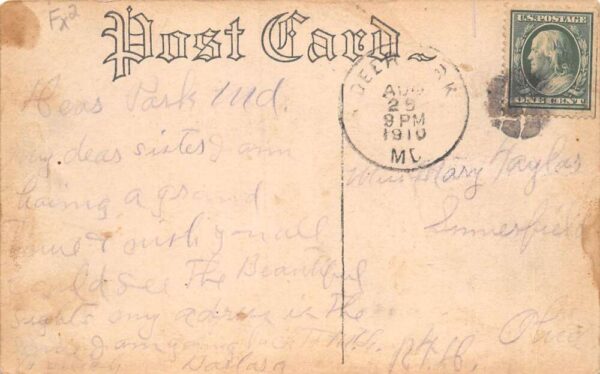 Fx2
Post Card
U.S. POSTAGE
ONE CENT
DEER PARK
AUG
25
9 PM
1910
MD
Park Md.
my dear sister I am
having a grand
time I wish you all
could see The Beautiful
sights my adress is the
I am going
Miss Mary Taylor
Summerfield
Ohio